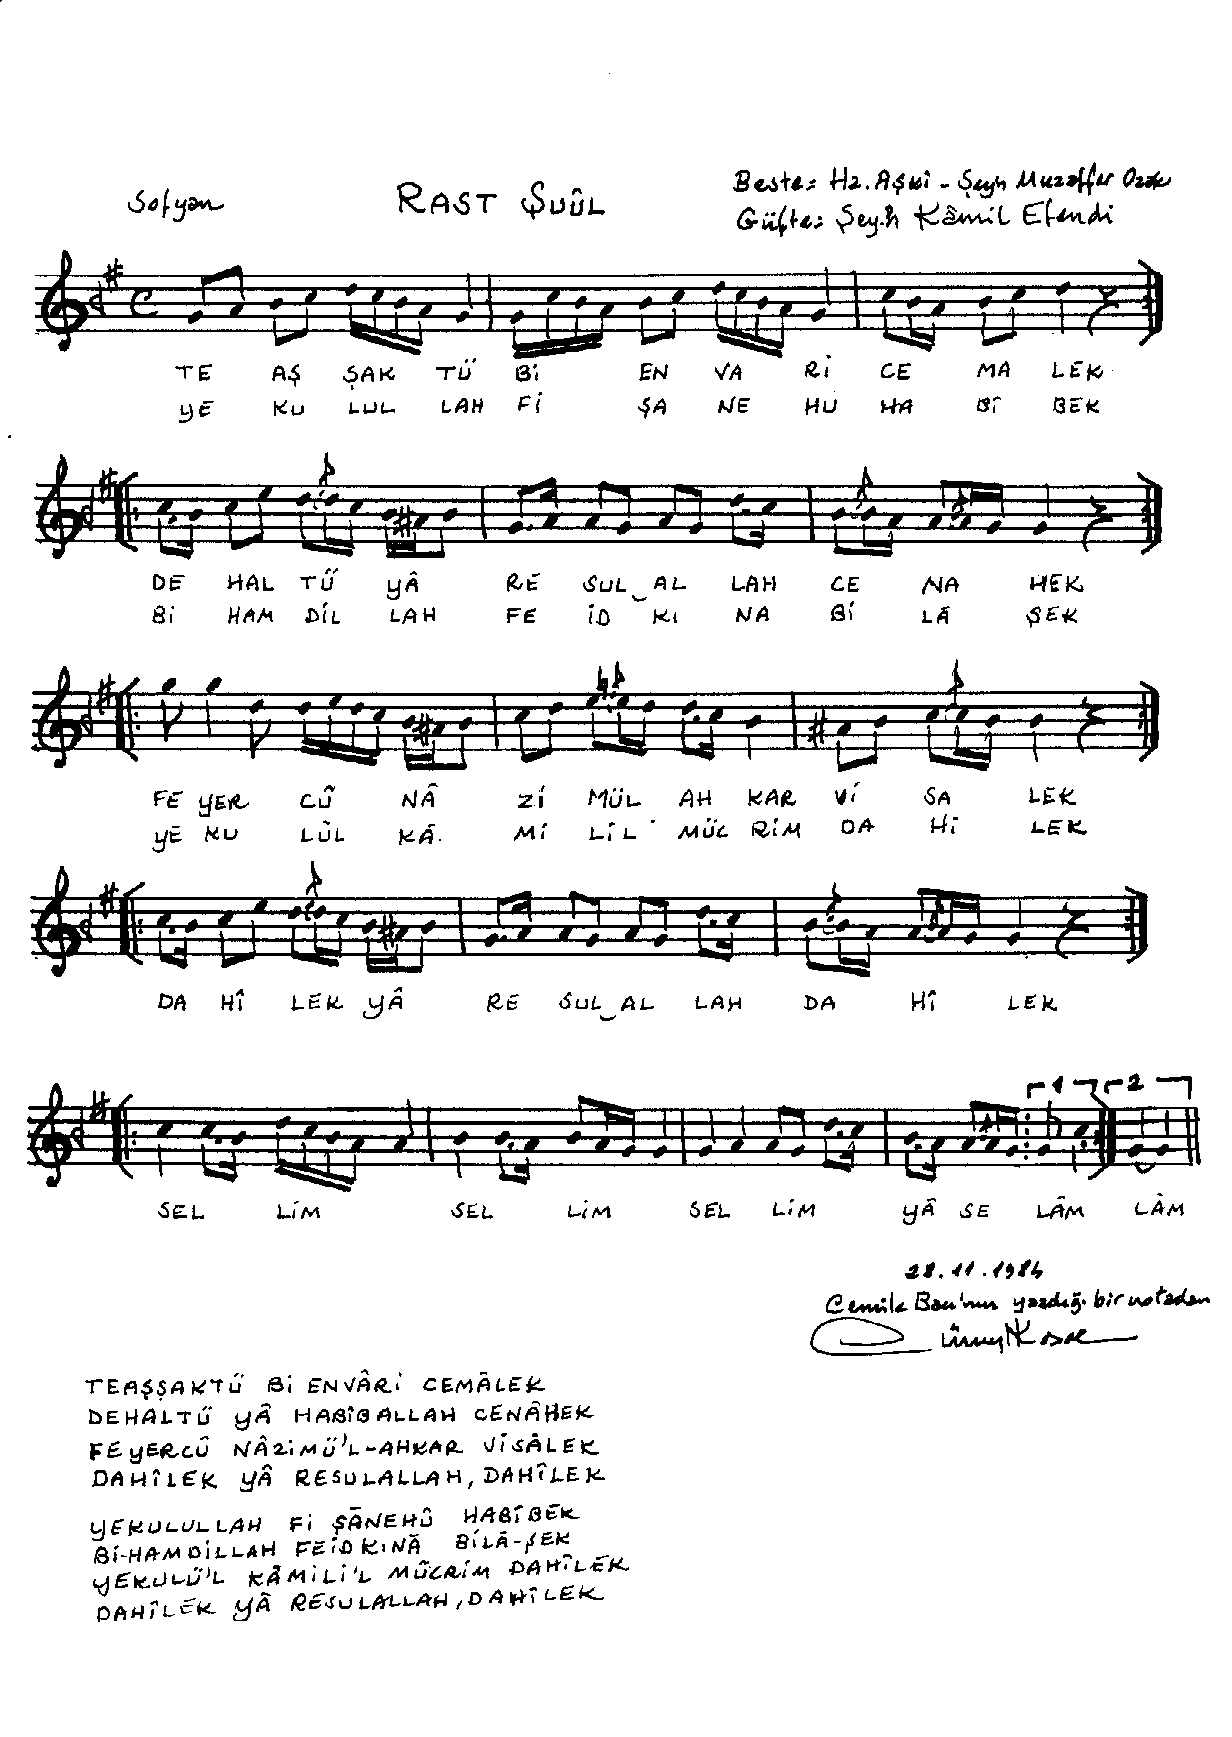 Sofyan
RAST ŞUÛL
Beste: Hz. Aşkî - Şeyh Muzaffer Ozak
Güfte: Şeyh Kâmil Efendi
TE AŞ ŞAK TÜ Bİ EN VA Rİ CE MA LEK
YE KU LUL LAH Fİ ŞA NE HU HA Bİ BEK
DE HAL TÜ YÂ RE SUL‿AL LAH CE NA HEK
Bİ HAM DİL LAH FE İD KI NA Bİ LÂ ŞEK
FE YER CÛ NÂ Zİ MÜL AH KAR Vİ SA LEK
YE KU LÜL KÂ. Mİ LİL MÜC RİM DA Hİ LEK
DA HÎ LEK YÂ RE SUL‿AL LAH DA HÎ LEK
1 2
SEL LİM SEL LİM SEL LİM YÂ SE LÂM LÂM
28.11.1984
Cemile Bacı'nın yazdığı bir notadan
TEAŞŞAKTÜ Bİ ENVÂRİ CEMÂLEK
DEHALTÜ YÂ HABÎBALLAH CENÂHEK
FEYERCÛ NÂZİMÜ'L-AHKAR VİSÂLEK
DAHÎLEK YÂ RESULALLAH, DAHÎLEK
YEKULULLAH Fİ ŞÂNEHÛ HABÎBEK
Bİ-HAMDİLLAH FEİDKINÂ BİLÂ-ŞEK
YEKULÜ'L KÂMİLİ'L MÜCRİM DAHÎLEK
DAHÎLEK YÂ RESULALLAH, DAHÎLEK